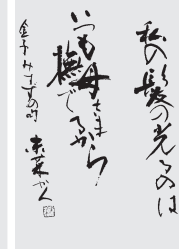 私の髪の光るのは
いつも母さま
撫でるから
金子みすゞの詩